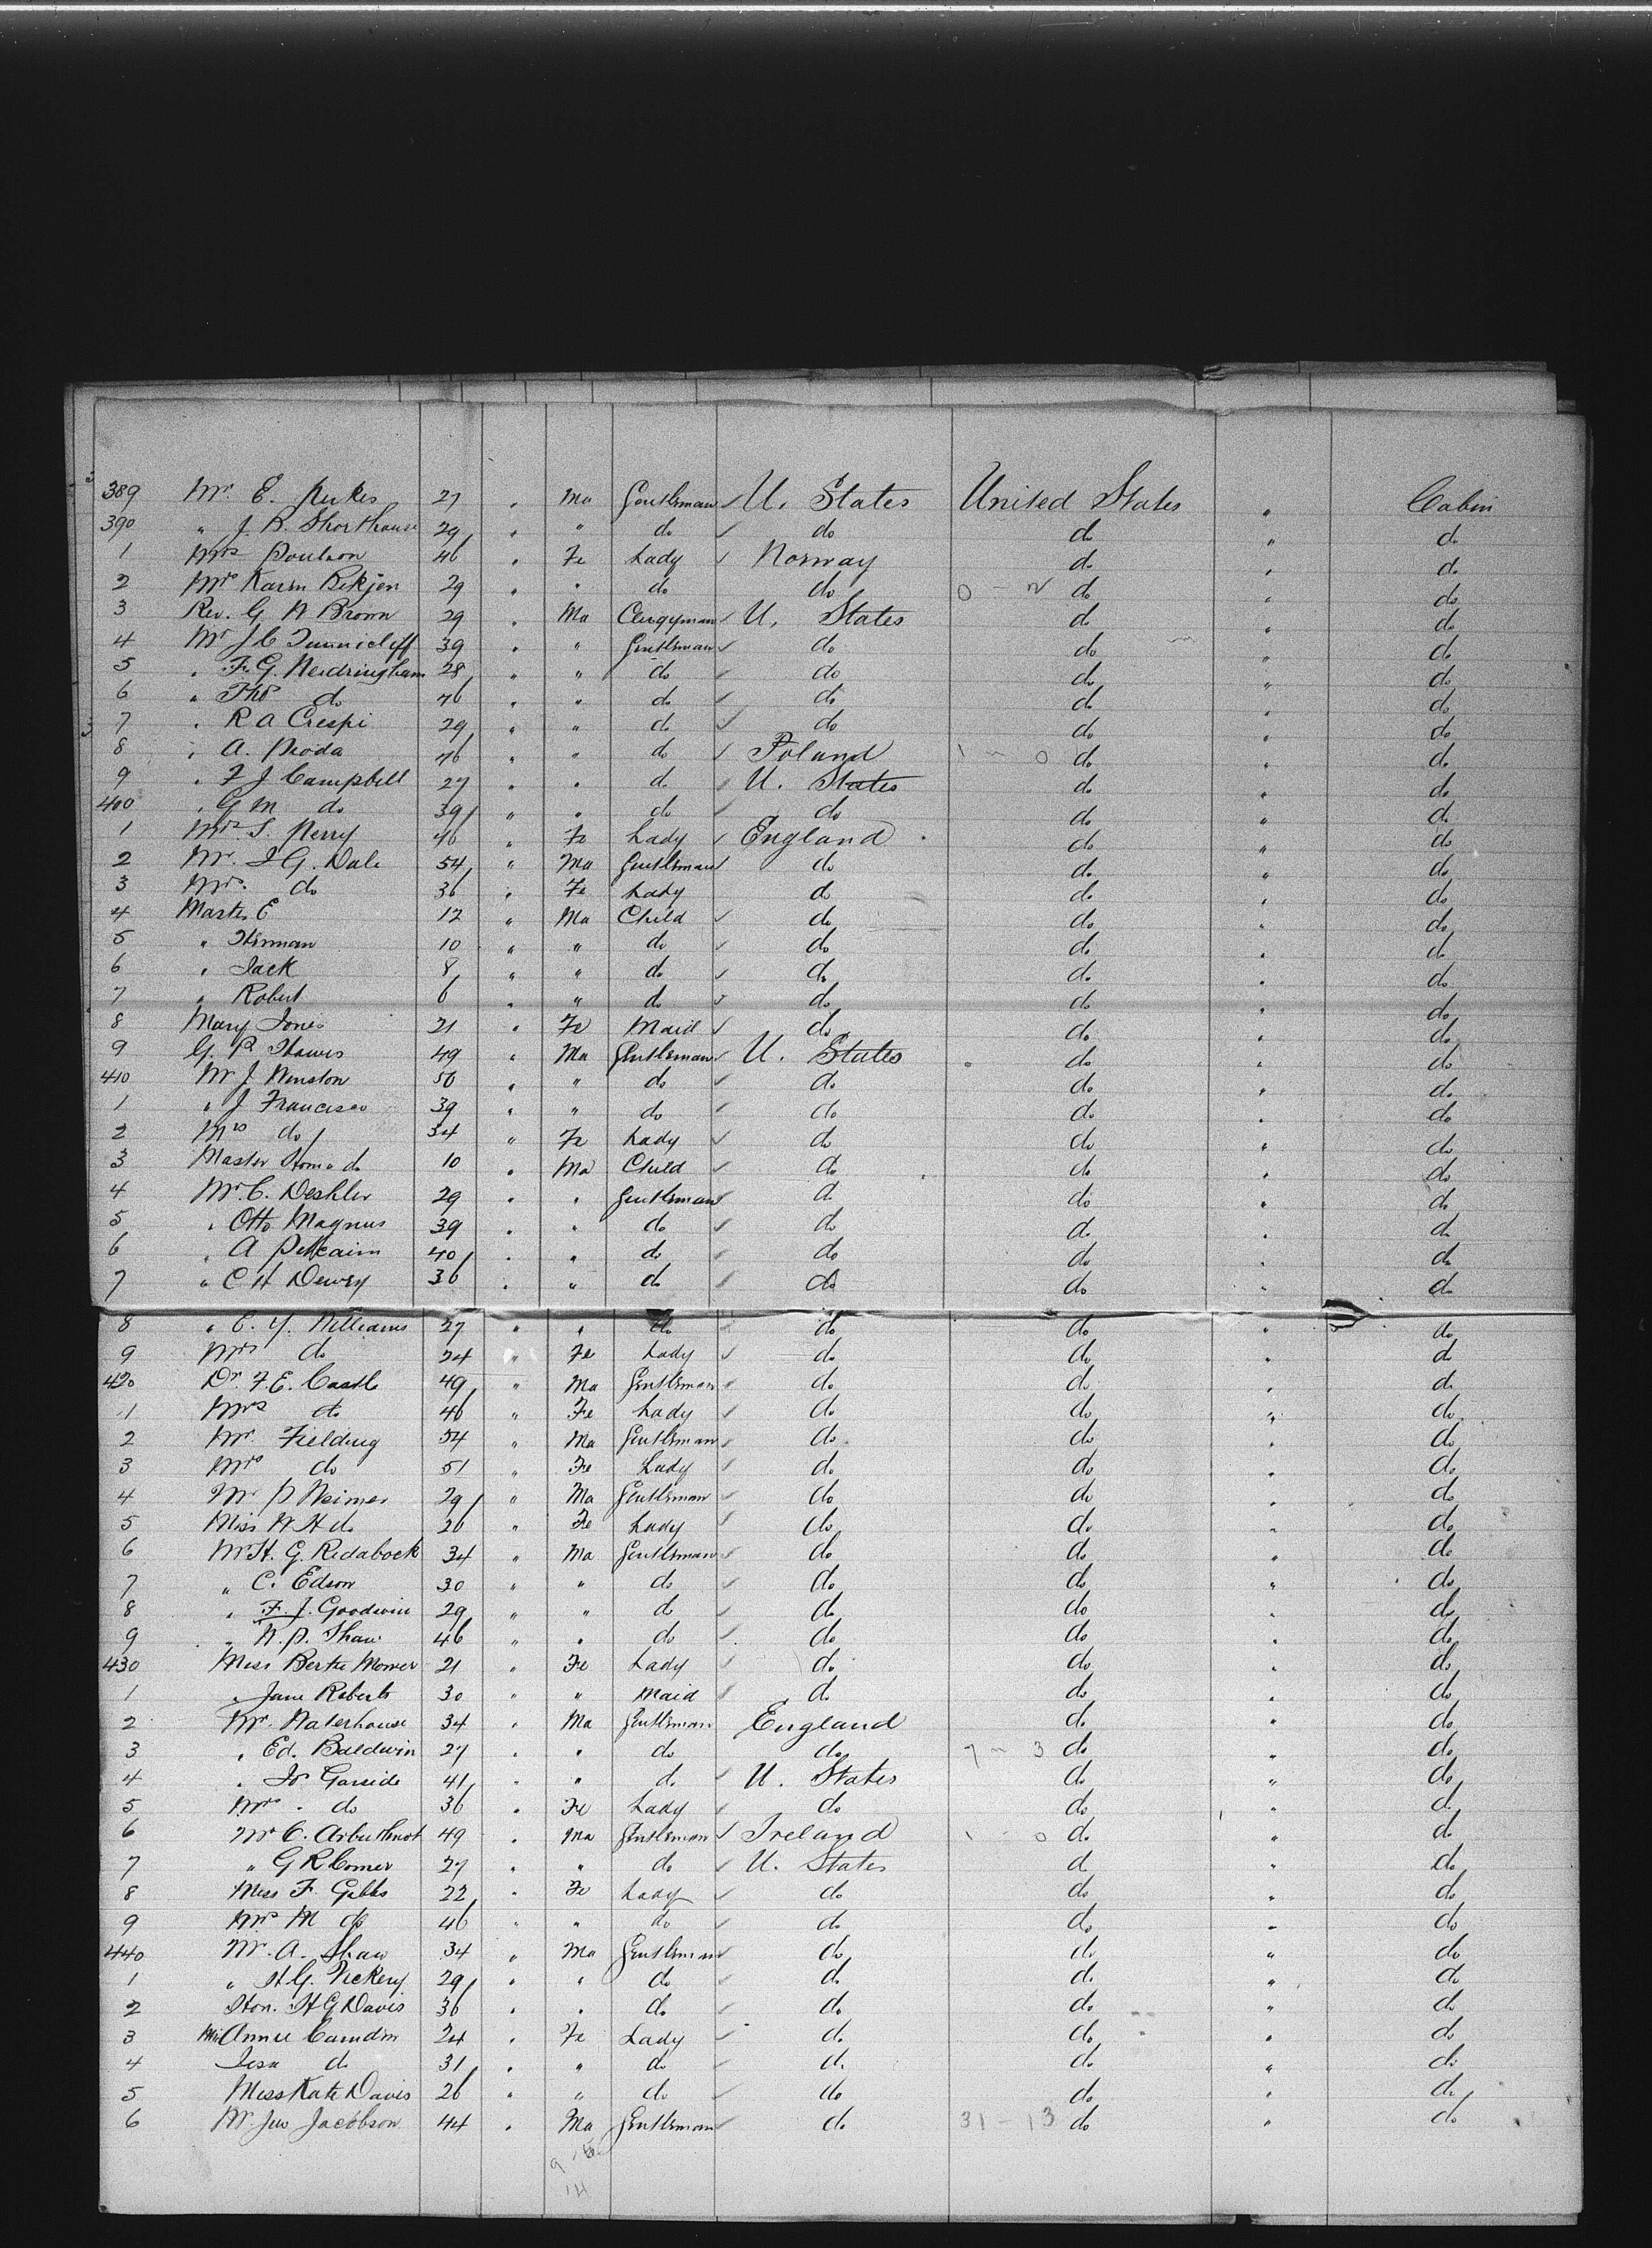 389 Mr. E. 27 " Ma Gentleman U. States United States " Cabin
390 " J. B. Shorthouse 29 " " do do do " do
1 Mrs Poulson 46 " Fe Lady Norway do " do
2 Mrs Karin 29 " " do do 0 - 2 do " do
3 Rev. G. W Brown 29 " Ma Clergyman U. States do " do
4 Mr J C Tunnicliff 39 " " Gentleman do do " do
5 " F. G. Neidringham 28 " " do do do " do
6 " Thos do 46 " " do do do " do
7 " R A Crespi 29 " " do do do " do
8 " A. Pioda 46 " " do Poland 1 - 0 do " do
9 " F J Campbell 27 " " do U. States do " do
400 " G M do 39 " " do do do " do
1 Mrs S. Perry 46 " Fe Lady England do " do
2 Mr. J G. Dale 54 " Ma Gentleman do do " do
3 Mrs. do 36 " Fe Lady do do " do
4 Mastr. E 12 " Ma Child do do " do
5 " Herman 10 " " do do do " do
6 " Jack 8 " " do do do " do
7 " Robert 6 " " do do do " do
8 Mary Jones 21 " Fe Maid do do " do
9 G. P. Hawes 49 " Ma Gentleman U. States do " do
410 Mr J. Winston 56 " " do do do " do
1 " J Francisco 39 " " do do do " do
2 Mrs do 34 " Fe Lady do do " do
3 Master do 10 " Ma Child do do " do
4 Mr. C. Deshler 29 " " Gentleman do do " do
5 " Otto Magnus 39 " " do do do " do
6 " A Pitcairn 40 " " do do do " do
7 " C H Dewey 36 " " do do do " do
8 " C. Y. Williams 27 " " do do do " do
9 Mrs do 24 " Fe Lady do do " do
420 Dr. F. E. Castle 49 " Ma Gentleman do do " do
1 Mrs do 46 " Fe Lady do do " do
2 Mr. Fielding 54 " Ma Gentleman do do " do
3 Mrs do 51 " Fe Lady do do " do
4 Mr P Weimer 29 " Ma Gentleman do do " do
5 Miss W H do 26 " Fe Lady do do " do
6 Mr H. G. Redabock 34 " Ma Gentleman do do " do
7 " C. Edson 30 " " do do do " do
8 " F. J. Goodwin 29 " " do do do " do
9 " W. P. Shaw 46 " " do do do " do
430 Miss Berthe Mower 21 " Fe Lady do do " do
1 " Jane Roberts 30 " " Maid do do " do
2 Mr. Waterhouse 34 " Ma Gentleman England do " do
3 " Ed. Baldwin 27 " " do do 7 - 3 do " do
4 " Jos Garside 41 " " do U. States do " do
5 Mrs. do 36 " Fe Lady do do " do
6 Mr C. Arbuthnot 49 " Ma Gentleman Ireland 1 - 0 do " do
7 " G R Comer 27 " " do U. States do " do
8 Miss F. Gibbs 22 " Fe Lady do do " do
9 Mrs M do 46 " " do do do " do
440 Mr. A. Shaw 34 " Ma Gentleman do do " do
1 " H. G. Vickery 29 " " do do do " do
2 Hon. H G Davis 36 " " do do do " do
3 Annie Camden 24 " Fe Lady do do " do
4 do 31 " " do do do " do
5 Miss Kate Davis 26 " " do do do " do
6 Mr. Jacobson 44 " Ma Gentleman do 31 - 13 do " do
14